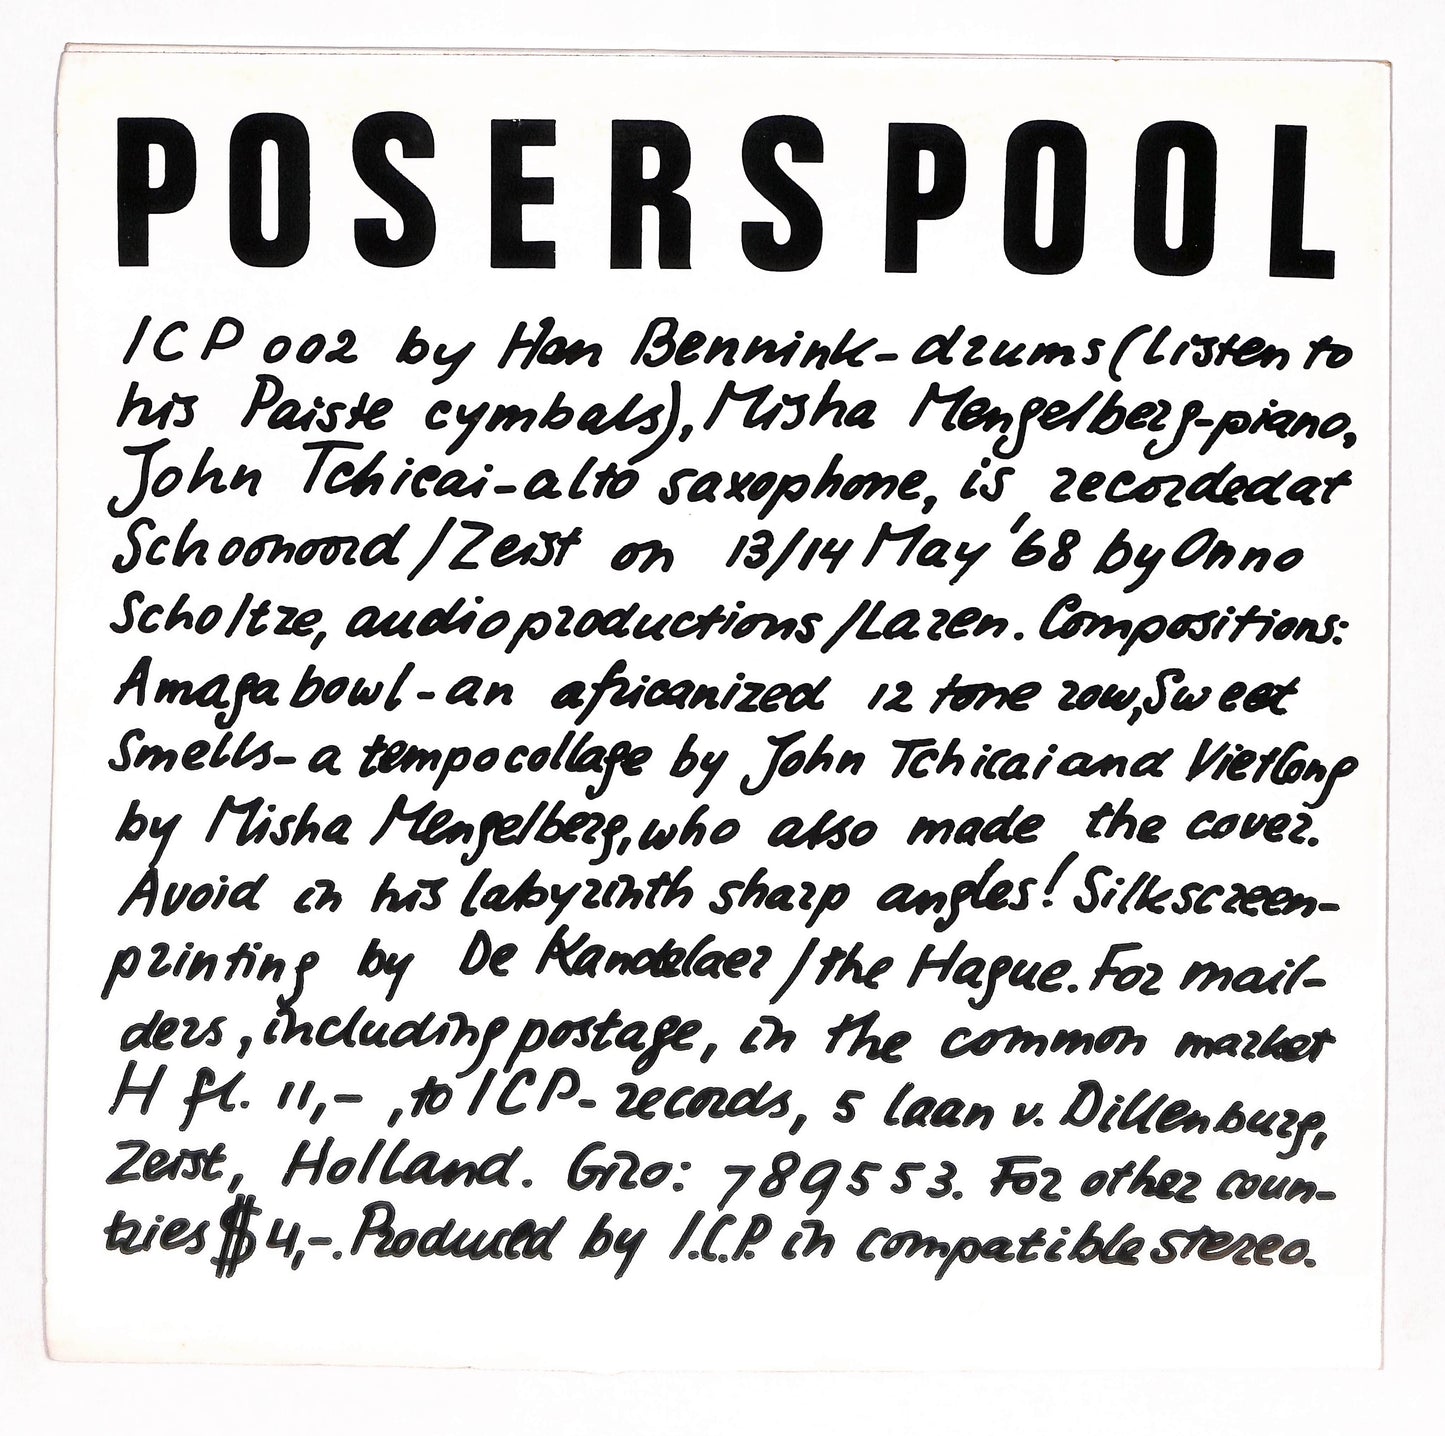 POSERSPOOL
ICP 002 by Han Bennink-drums (listen to
his Paiste cymbals), Misha Mengelberg-piano,
John Tchicai-alto saxophone, is recorded at
Schoonoord/Zeist on 13/14 May '68 by Onno
Scholtze, audioproductions/Laren. Compositions:
Amagabowl-an africanized 12 tone row, Sweet
Smells-a tempocollage by John Tchicai and VietCong
by Misha Mengelberg, who also made the cover.
Avoid in his labyrinth sharp angles! Silkscreen-
printing by De Kandelaer/the Hague. For mail-
ders, including postage, in the common market
H fl. 11,-, to ICP-records, 5 laan v. Dillenburg,
Zeist, Holland. Giro: 789553. For other coun-
tries $4,-. Produced by I.C.P. in compatible stereo.